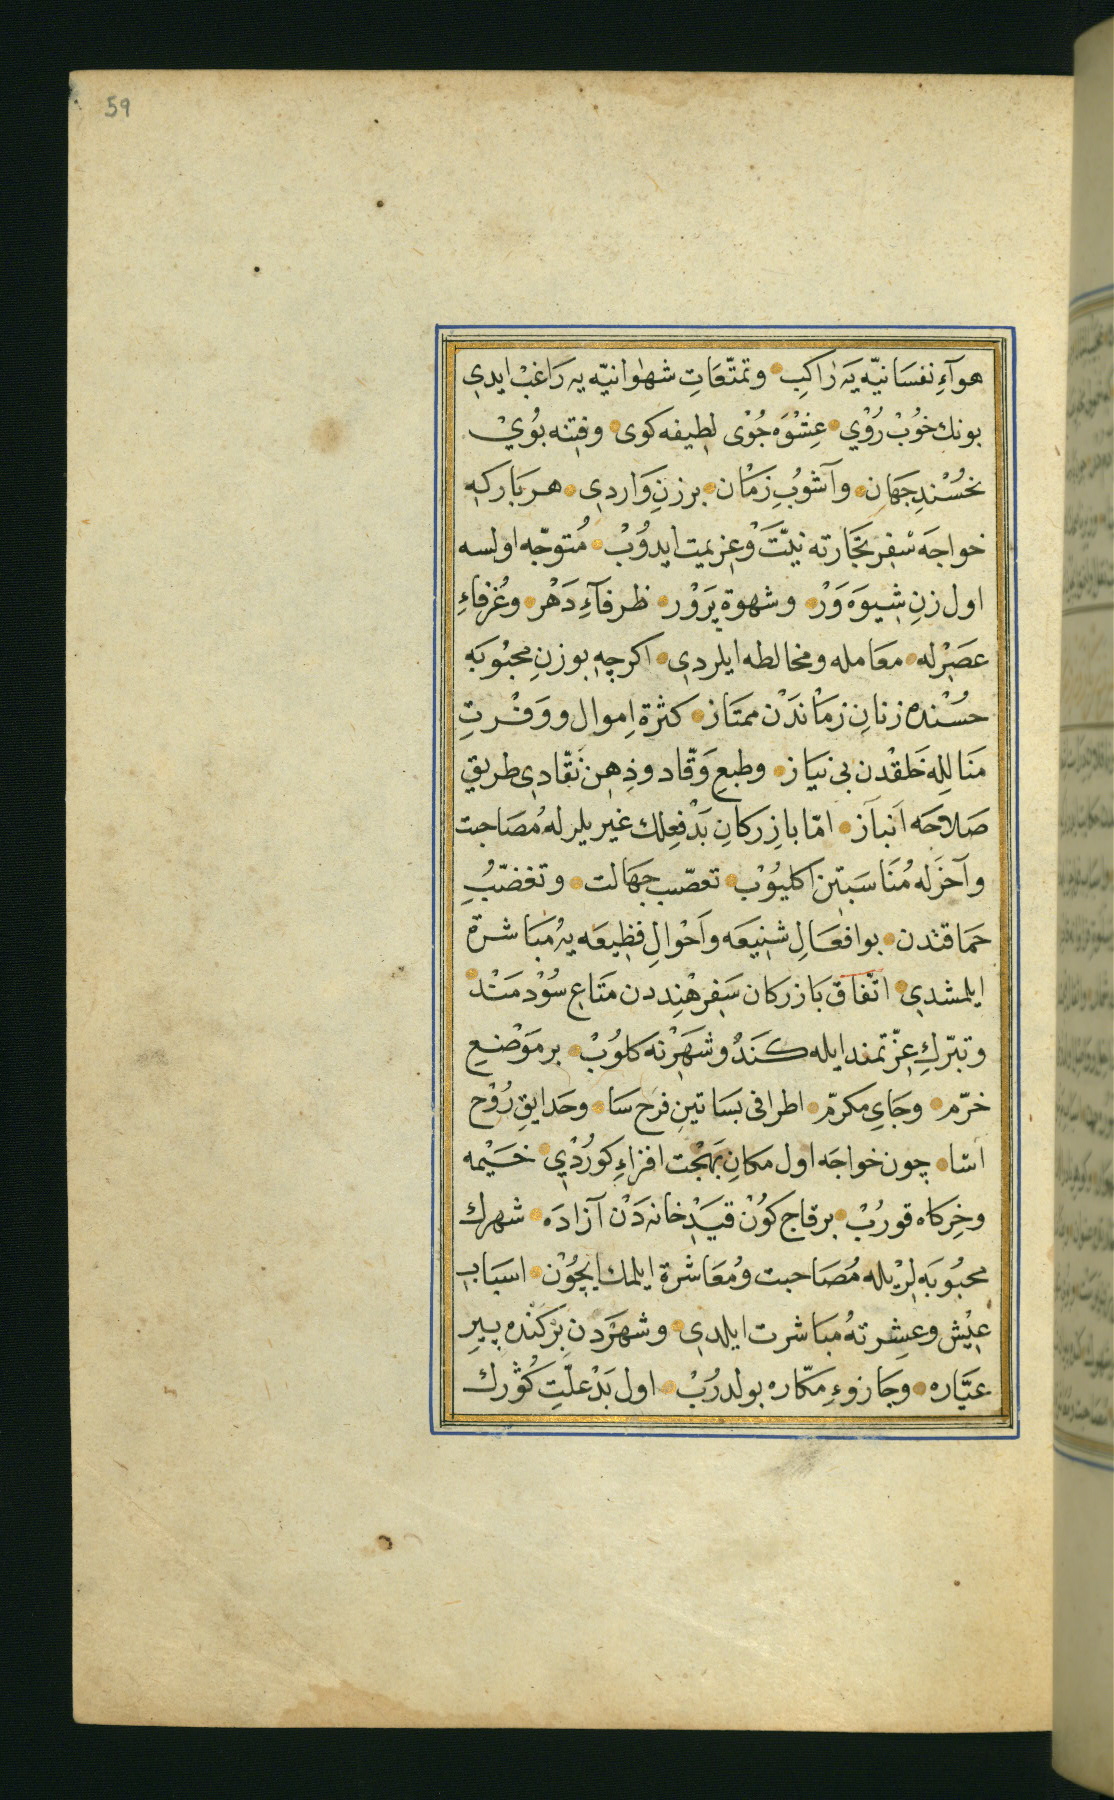 59
هوآءِ نفسَانيّه يَه رَاكِب وتمتّعَاتِ شهوانيّه يه رَاغبْ ايدى
بونك خُوبْ رُوْي عِشْوَه جُوْى لطيفه كوى وفِتنه بُويْ
حُسْنِدِ جَهَان وآشوُبِ زمَان بر زنِ وَارِدى هر بَاركه
خواجَه سفرِ تجَارته نيّتْ وعزيمت ايدوُبْ مُتوجّه اولسه
اول زنِ شيوَه وَرْ و شهوة پَرَوْر ظرفآءِ دَهْر وعُرفاءِ
عصَرله معَامله ومخالطه ايلردى اكرچه بو زنِ محبُوبَه
حسُنْده زنانِ زمَاندَنْ ممتَاز كثرة اموال ووَفْرتِ
مَنَالله خَلقْدن بى نيَاز وطبعِ وَقّاد وذِهن نَقّادى طريقِ
صَلاحَه اَنبآز امّا بازركانِ بَدْفعِلك غيريلرله مُصَاحبت
وآخَرَله مُنَاسَبتِن اكليُوْب تعصّبِ جَهَالت وتغضّبُِ
حمَاقتدن بو افعَالِ شنيعَه واَحْوالِ فظيعَه يه مُبَاشرة
ايلمشدى اتّفاق بَازركان سَفرِ هْندِدن متَاعِ سُوْدمَنْد
وتبرّكِ عزّتمند ايله كَنَدُو شَهَرْنه كلوُبْ بر مَوْضعِ
خرّم وجَاىِ مكرّم اطرافى بسَاتينِ فرح سَا وحَدايقِ رُوْح
اسَا چون خواجَه اول مكانِ بَهْجَت افزاءِ كورُدْي خَيْمه
وخِركَاه قورُبْ بر قاج كوُنْ قيَدِ خانه دَنْ آزادَه شهرك
محبُوبَه لِريله مُصَاحبت ومُعَاشرة ايلمك ايچوُن اسبَابِ
عيْش وعشِرتهُ مبَاشرت ايلدى وشهَرْدن بر كنده پيرِ
عيّاره وجَازوءِ مكّاره بولدرُبْ اول بَدْ علّتِ كُوْرك